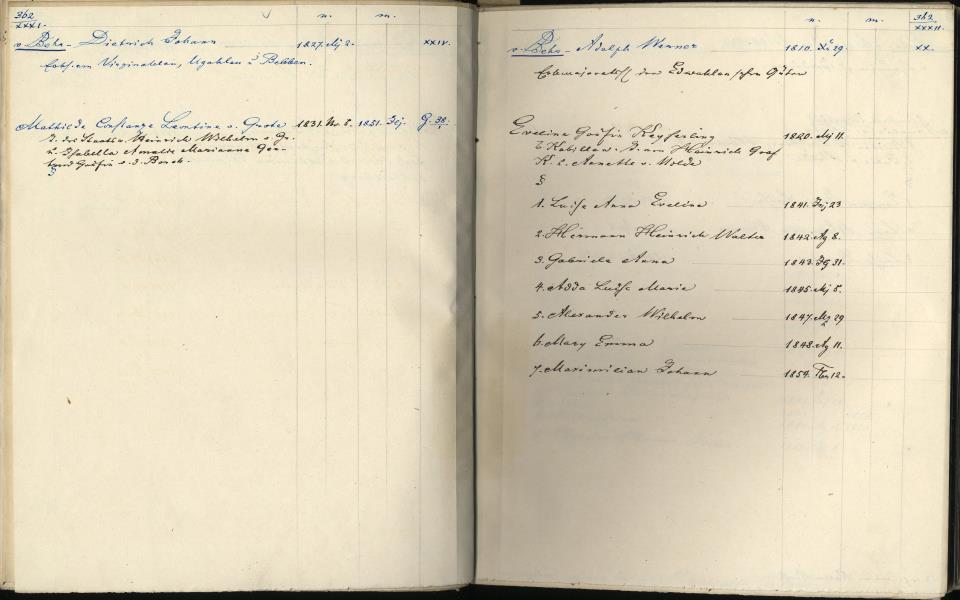 362
XXXI.
n. m.
v. Behr - Dietrich Johann 1827. Mj 2. XXIV.
Erbh. von Virginahlen, Ugahlen u Beleben.
Mathilde Constanze Leontine v. Grote 1831. Nr. 5. 1851. Jlj. G. 38.
T. des Wilhelm v. Gr.
u. Isabella Amalie Marianne
Gräfin v. d. Borch.
n. m. 362
XXXII.
v. Behr - Adolph Werner 1810. 29. XX.
Erbmajoratsh. der Edwahlenschen Güter
Eveline Gräfin Keyserling 1820. Mj 11.
z Kabillen. T. von Heinrich Graf
K. u. Annette v. Wolde
§
1. Luise Anna Eveline 1841. Jnj 23
2. Hermann Heinrich Walter 1842. Ag 8.
3. Gabriele Anna 1843. 31.
4. Adda Luise Marie 1845. Mj 5.
5. Alexander Wilhelm 1847. Mz 29
6. Mary Emma 1848. Ag 11.
7. Maximilian Johann 1854. 12.